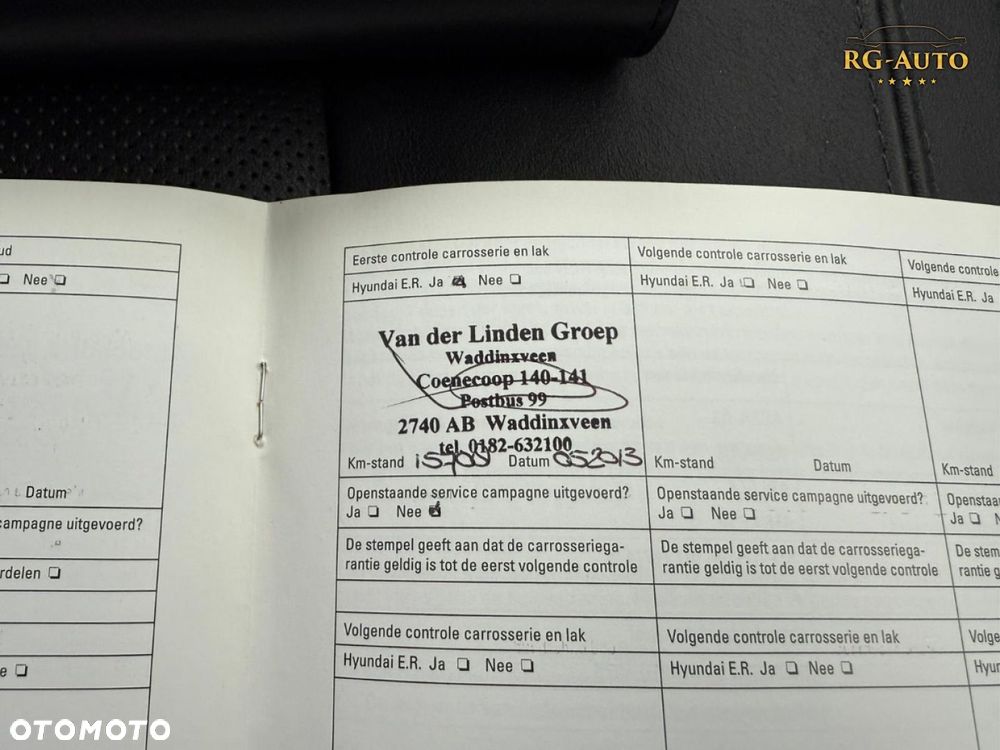 RG-AUTO
ud
Nee
Datum
campagne uitgevoerd?
rdelen
e
Eerste controle carrosserie en lak
Hyundai E.R. Ja Nee
Van der Linden Groep
Waddinxveen
Coenecoop 140-141
Postbus 99
2740 AB Waddinxveen
tel. 0182-632100
Km-stand 15700 Datum 052013
Openstaande service campagne uitgevoerd?
Ja Nee
De stempel geeft aan dat de carrosseriega-
rantie geldig is tot de eerst volgende controle
Volgende controle carrosserie en lak
Hyundai E.R. Ja Nee
Volgende controle carrosserie en lak
Hyundai E.R. Ja Nee
Km-stand Datum
Openstaande service campagne uitgevoerd?
Ja Nee
De stempel geeft aan dat de carrosseriega-
rantie geldig is tot de eerst volgende controle
Volgende controle carrosserie en lak
Hyundai E.R. Ja Nee
Volgende controle
Hyundai E.R. Ja
Km-stand
Openstaa
Ja N
De stem
rantie g
Volge
Hyun
OTOMOTO